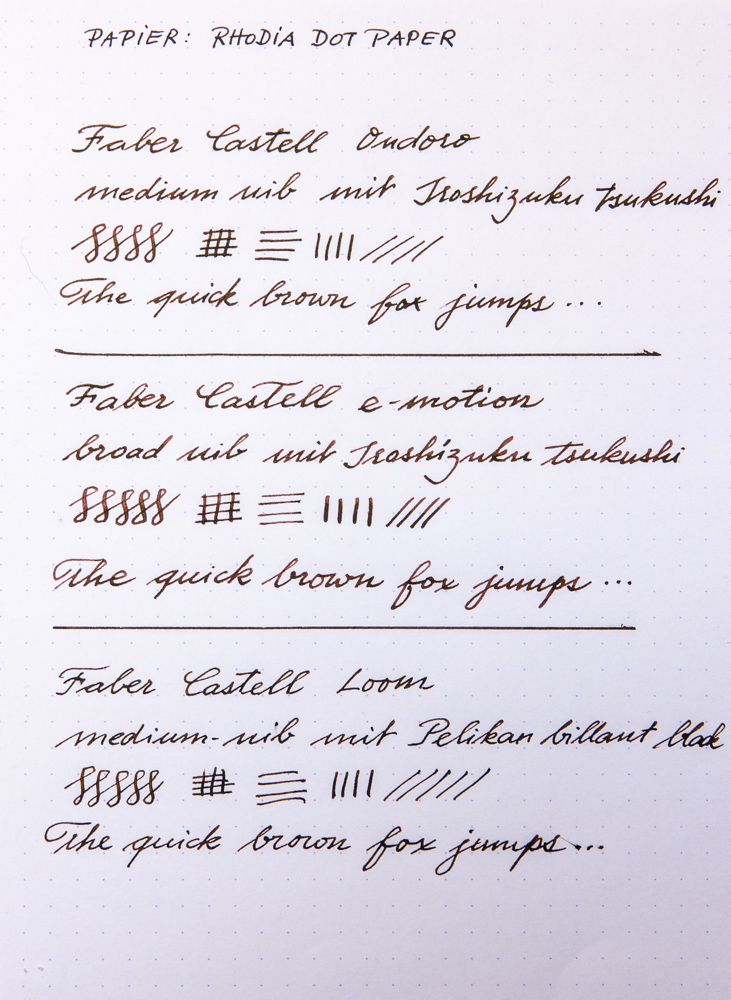 PAPIER: RHODIA DOT PAPER
Faber Castell Ondoro
medium nib mit Iroshizuku tsukushi
The quick brown fox jumps ...
Faber Castell e-motion
broad nib mit Iroshizuku tsukushi
The quick brown fox jumps ...
Faber Castell Loom
medium-nib mit Pelikan billant black
The quick brown fox jumps...